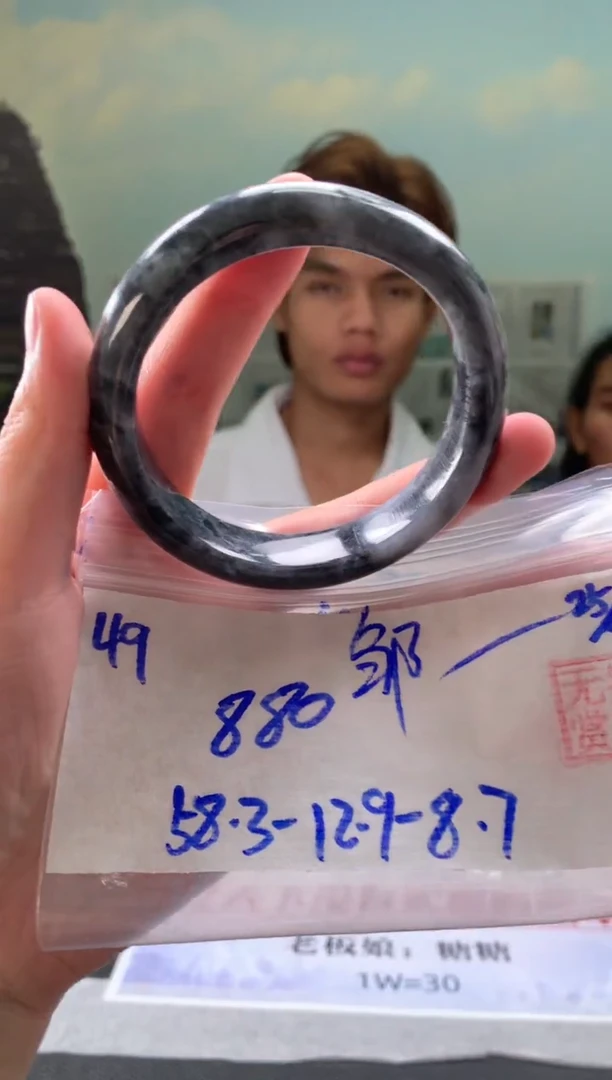 49
邹
25/
880
58.3-12.9-8.7
老板娘：糖糖
1W=30